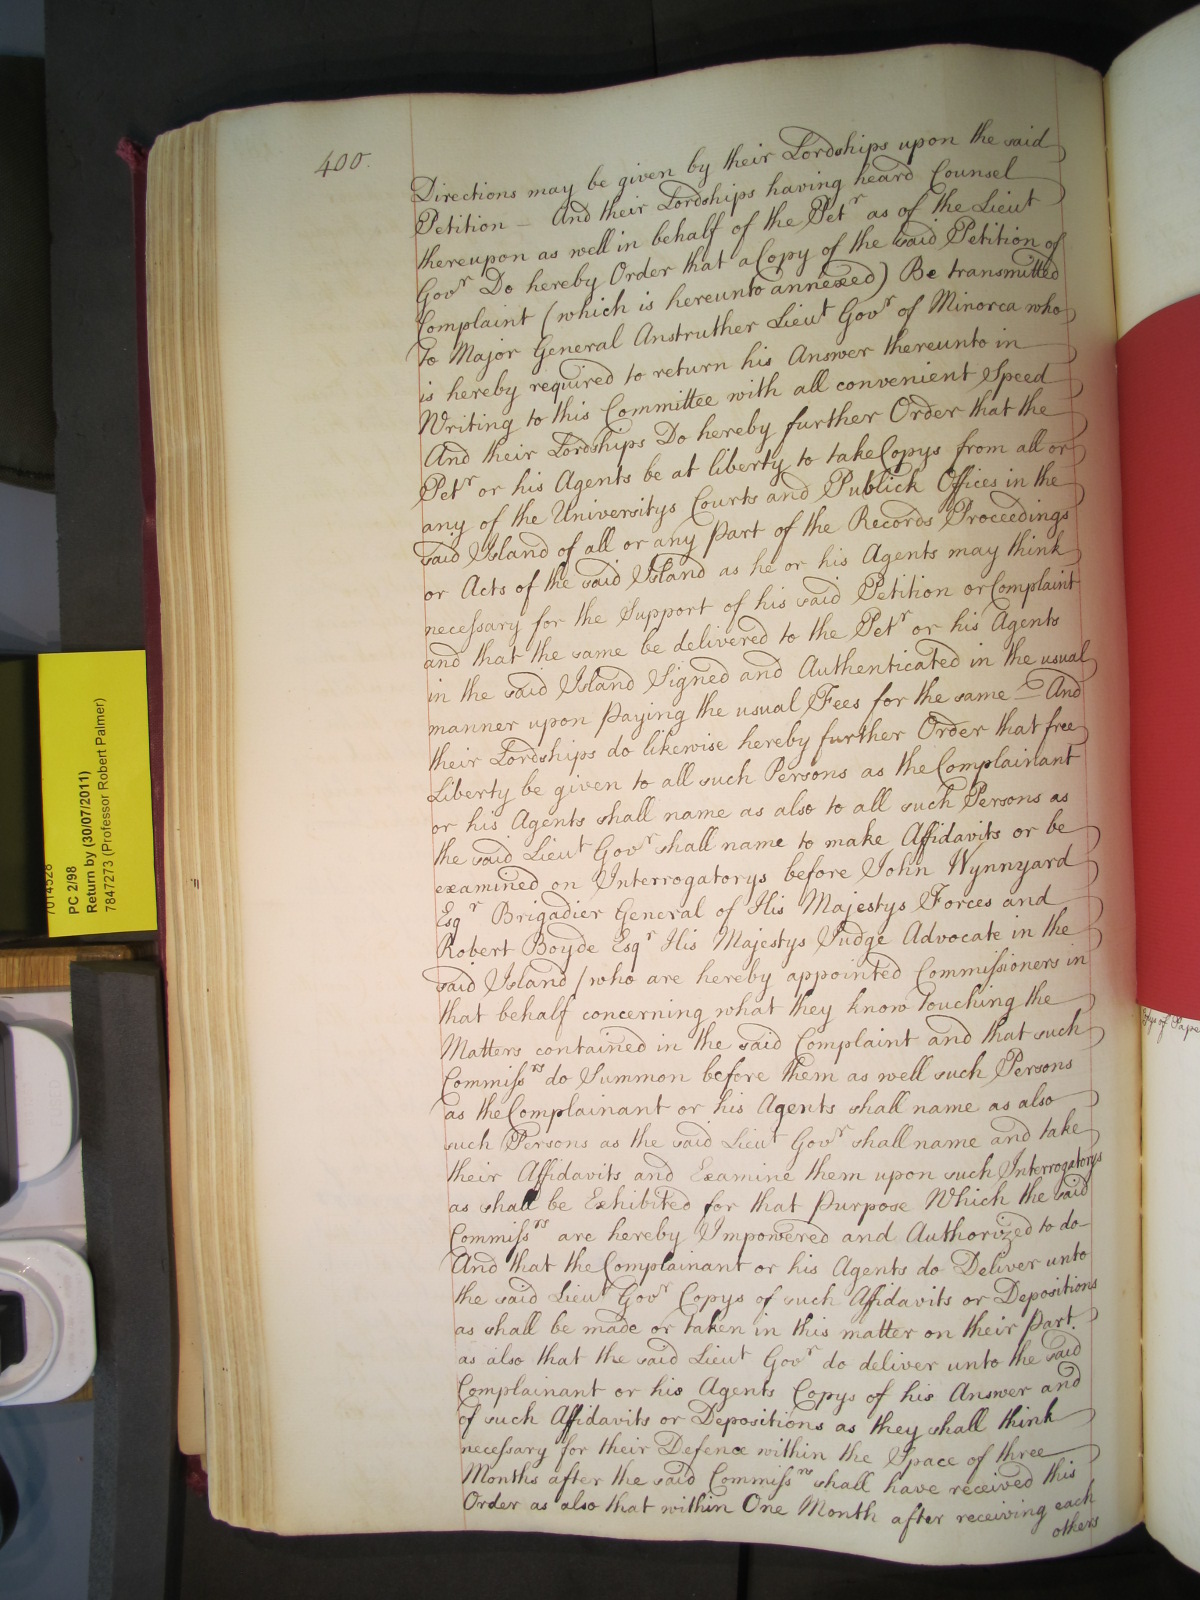 400.
Directions may be given by their Lordships upon the said
Petition — And their Lordships having heard Counsel
thereupon as well in behalf of the Petr as of the Lieut
Govr Do hereby Order that a Copy of the said Petition of
Complaint (which is hereunto annexed) Be transmitted
to Major General Anstruther Lieut Govr of Minorca who
is hereby required to return his Answer thereunto in
Writing to this Committee with all convenient Speed
And their Lordships Do hereby further Order that the
Petr or his Agents be at liberty to take Copys from all or
any of the Universitys Courts and Publick Offices in the
said Island of all or any part of the Records Proceedings
or Acts of the said Island as he or his Agents may think
necessary for the Support of his said Petition or Complaint
and that the same be delivered to the Petr or his Agents
in the said Island Signed and Authenticated in the usual
manner upon paying the usual Fees for the same — And
their Lordships do likewise hereby further Order that free
Liberty be given to all such Persons as the Complainant
or his Agents shall name as also to all such Persons as
the said Lieut Govr shall name to make Affidavits or be
examined on Interrogatorys before John Wynnyard
Esqr Brigadier General of His Majestys Forces and
Robert Boyde Esqr His Majestys Judge Advocate in the
said Island /who are hereby appointed Commissioners in
that behalf concerning what they know touching the
Matters contained in the said Complaint and that such
Commissrs do Summon before them as well such Persons
as the Complainant or his Agents shall name as also
such Persons as the said Lieut Govr shall name and take
their Affidavits and Examine them upon such Interrogatorys
as shall be Exhibited for that purpose Which the said
Commissrs are hereby Impowered and Authorized to do
And that the Complainant or his Agents do Deliver unto
the said Lieut Govr Copys of such Affidavits or Depositions
as shall be made or taken in this matter on their part.
as also that the said Lieut Govr do deliver unto the said
Complainant or his Agents Copys of his Answer and
of such Affidavits or Depositions as they shall think
necessary for their Defence within the Space of three
Months after the said Commissrs shall have received this
Order as also that within One Month after receiving each
others
7014528
PC 2/98
Return by (30/07/2011)
7847273 (Professor Robert Palmer)
of Pape